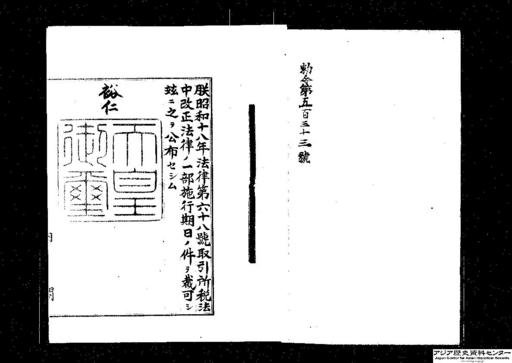 勅令第五百三十三號
朕昭和十八年法律第六十八號取引所税法
中改正法律ノ一部施行期日ノ件ヲ裁可シ
玆ニ之ヲ公布セシム
裕仁
天皇
御璽
内閣
アジア歴史資料センター
Japan Center for Asian Historical Records